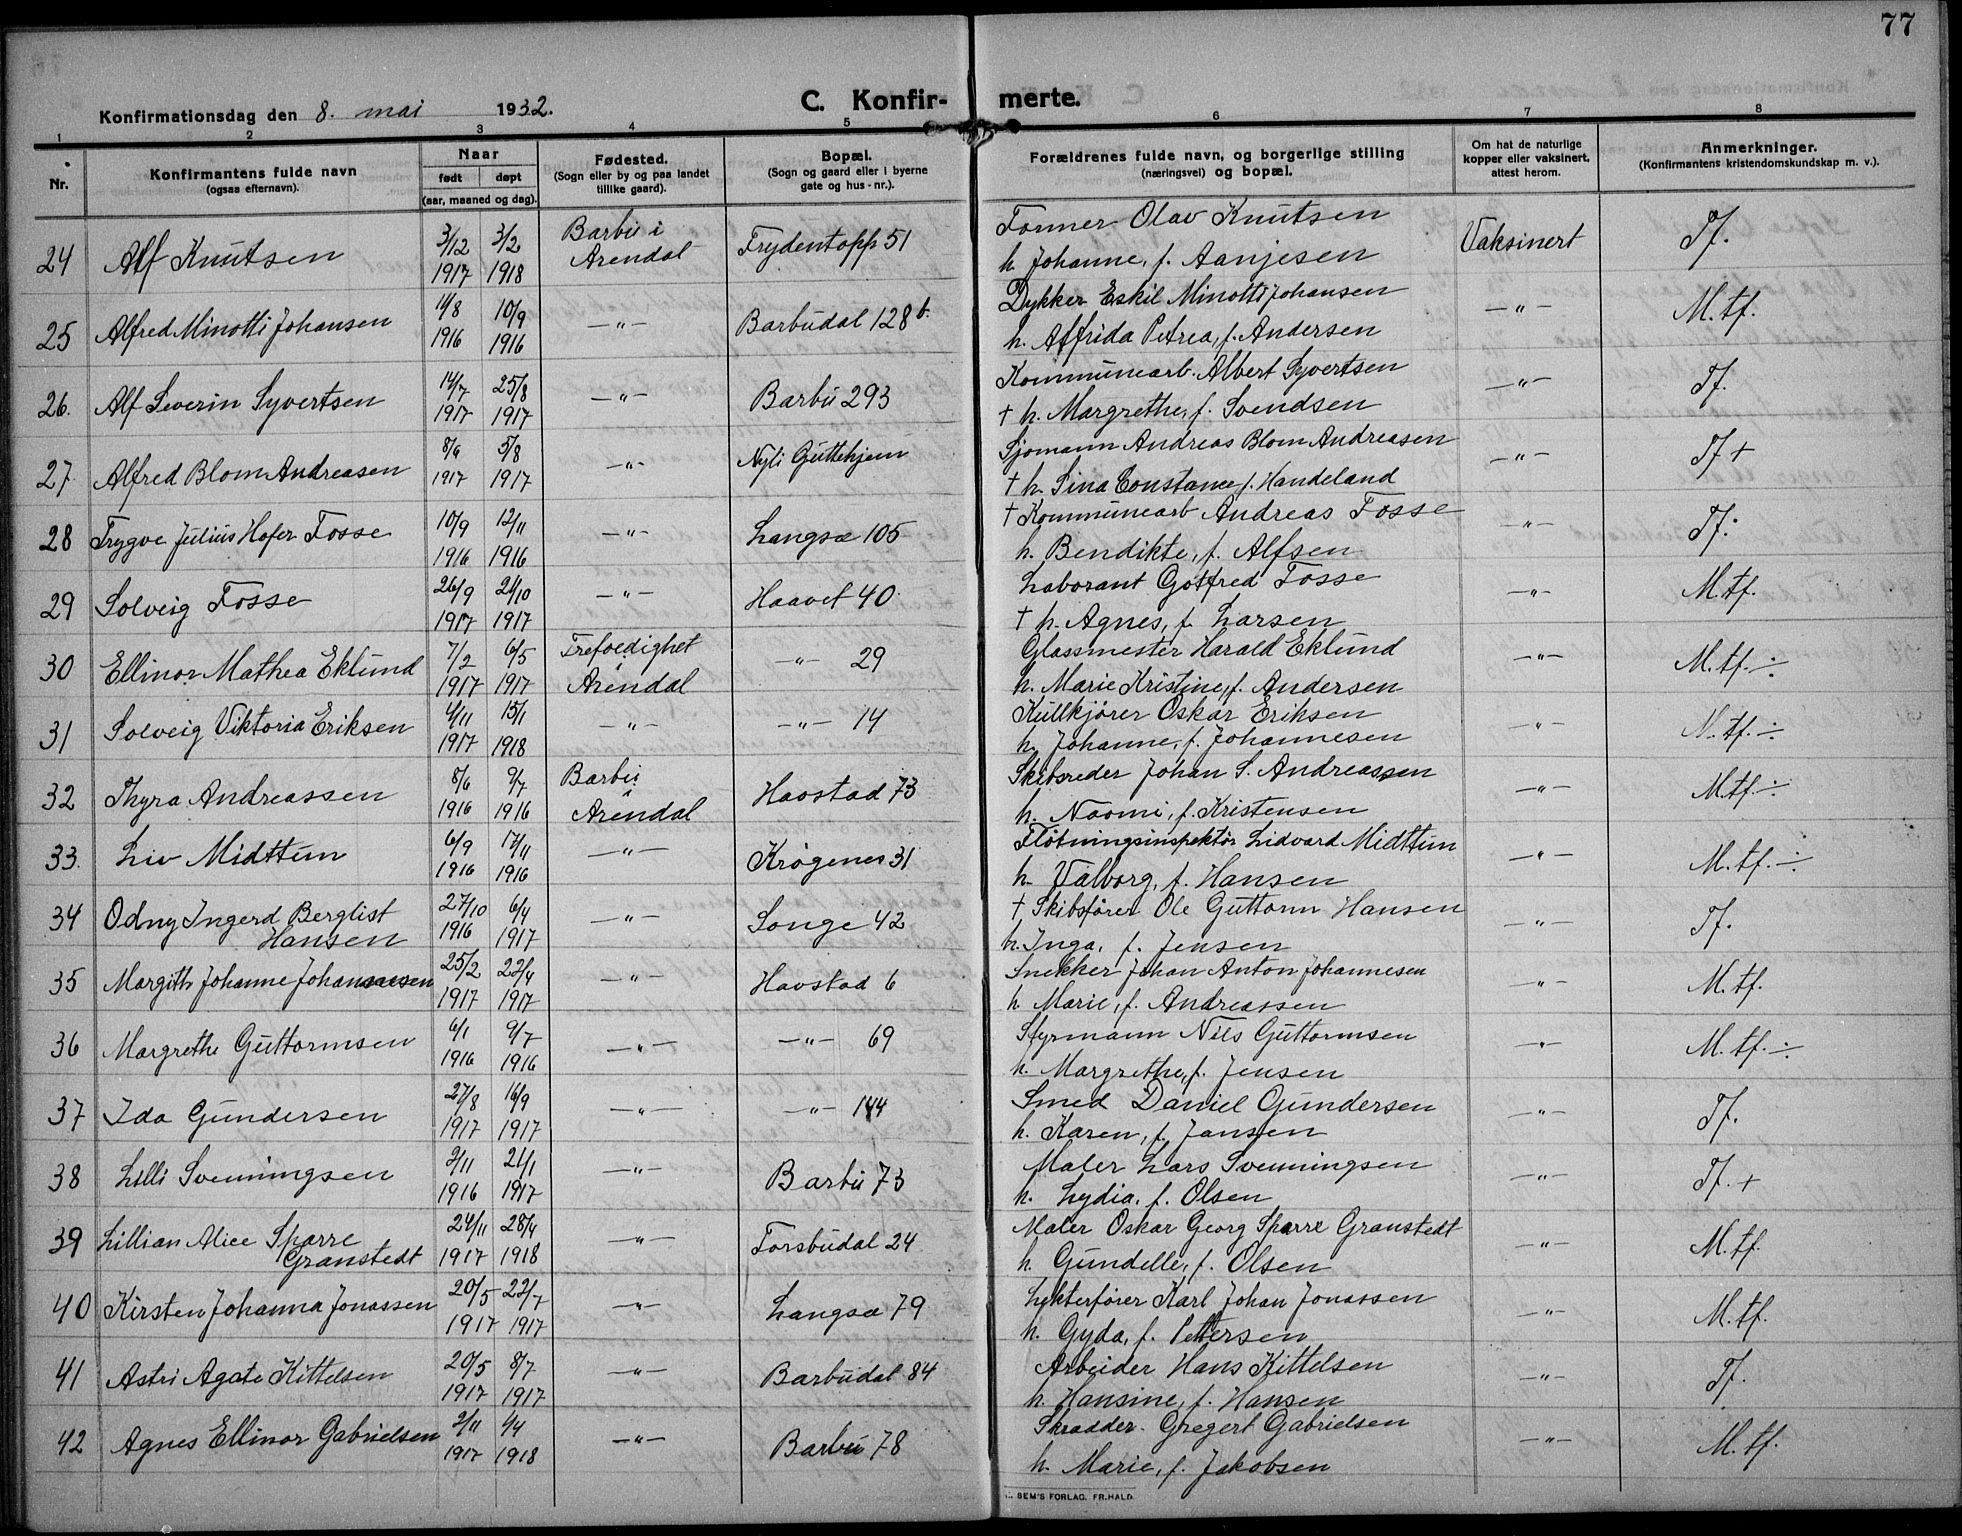 77
Konfirmationsdag den 8. mai 1932.
C. Konfir- merte.
1 2 3 4 5 6 7 8
Nr.
Konfirmantens fulde navn
(ogsaa efternavn).
Naar
født døpt
(aar, maaned og dag).
Fødested.
(Sogn eller by og paa landet
tillike gaard).
Bopæl.
(Sogn og gaard eller i byerne
gate og hus-nr.).
Forældrenes fulde navn, og borgerlige stilling
(næringsvei) og bopæl.
Om hat de naturlige
kopper eller vaksinert,
attest herom.
Anmerkninger.
(Konfirmantens kristendomskundskap m. v.).
24 Alf Knutsen 3/12 1917 3/2 1918 Barbu i Arendal Frydentopp 51 Former Olav Knutsen Vaksinert Tf.
h. Johanne, f. Aanjesen
25 Alfred Minotti Johansen 11/8 1916 10/9 1916 —„— Barbudal 128b. Dykker Eskil Minotti Johansen —„— M.tf.
h. Alfrida Petrea, f. Andersen
26. Alf Severin Syvertsen 14/7 1917 25/8 1917 —„— Barbu 293 Kommunearb. Albert Syvertsen —„— Tf.
† h. Margrethe, f. Svendsen
27. Alfred Blom Andreasen 8/6 1917 5/8 1917 —„— Nyli Guttehjem Sjømann Andreas Blom Andreasen —„— Tf +
† h. Sina Constance f. Handeland
28 Trygve Julius Hofer Fosse 10/9 1916 12/11 1916 —„— Langsæ 105 † Kommunearb Andreas Fosse —„— Tf.
h. Bendikte, f. Alfsen
29 Solveig Fosse 26/9 1917 21/10 1917 —„— Haavet 40. Laborant Gotfred Fosse —„— M.tf.
† h. Agnes, f. Larsen
30 Ellinor Mathea Eklund 7/2 1917 6/5 1917 Trefoldighet Arendal —„— 29 Glassmester Harald Eklund —„— M.tf. ÷
h. Marie Kristine, f. Andersen
31 Solveig Viktoria Eriksen 4/11 1917 15/1 1918 —„— —„— 14 Kullkjører Oskar Eriksen —„— M.tf. ÷
h. Johanne, f. Johannesen
32 Thyra Andreassen 8/6 1916 9/7 1916 Barbu i Arendal Havstad 73 Skibsreder Johan S. Andreassen —„— M.tf. ÷
h. Naomi, f. Kristensen
33. Liv Midttun 6/9 1916 17/11 1916 —„— Krøgenes 31 Fløtningsinspektør Lidvard Midttun —„— M.tf. ÷
h. Valborg, f. Hansen
34 Odny Ingerd Berglist Hansen 27/10 1916 6/4 1917 —„— Songe 42 † Skibsfører Ole Guttorm Hansen —„— Tf.
h. Inga, f. Jensen
35 Margith Johanne Johannesen 25/2 1917 22/4 1917 —„— Havstad 6 Snekker Johan Anton Johannesen —„— M.tf.
h. Marie, f. Andreassen
36 Margrethe Guttormsen 6/1 1916 9/7 1916 —„— —„— 69 Styrmann Nils Guttormsen —„— M.tf. ÷
h. Margrethe, f. Jensen
37 Ida Gundersen 27/8 1917 16/9 1917 —„— —„— 144 Smed Daniel Gundersen —„— Tf.
h. Karen, f. Jansen
38 Lilli Svenningsen 2/11 1916 21/1 1917 —„— Barbu 73 Maler Lars Svenningsen —„— Tf. +
h. Lydia, f. Olsen
39 Lillian Alice Sparre Granstedt 24/11 1917 28/4 1918 —„— Forsbudal 24 Maler Oskar Georg Sparre Granstedt —„— M.tf.
h. Gundelle, f. Olsen
40 Kirsten Johanna Jonassen 20/5 1917 22/7 1917 —„— Langsæ 79 Lekterfører Karl Johan Jonassen —„— M.tf.
h. Gyda, f. Pettersen
41 Astri Agate Kittelsen 20/5 1917 8/7 1917 —„— Barbudal 84 Arbeider Hans Kittelsen —„— Tf.
h. Hansine, f. Hansen
42 Agnes Ellinor Gabrielsen 2/11 1917 1/4 1918 —„— Barbu 78 Skradder Gregert Gabrielsen —„— M.tf.
h. Marie, f. Jakobsen
SEM'S FORLAG. FR.HALD.